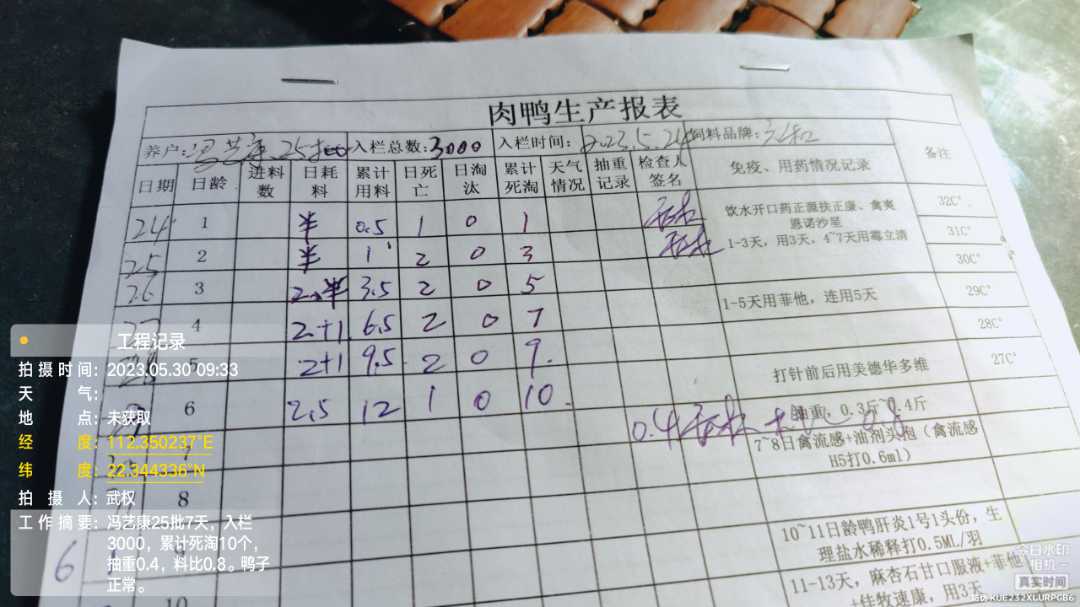 肉鸭生产报表
养户: 冯艺康 25批 入栏总数: 3000 入栏时间: 2023.5.24 饲料品牌:
日期 日龄 进料数 日耗料 累计用料 日死亡 日淘汰 累计死淘 天气情况 抽重记录 检查人签名 免疫、用药情况记录 备注
24 1 半 0.5 1 0 1 饮水开口药正源扶正康、禽爽 32C°
恩诺沙星
25 2 半 1 2 0 3 1-3天，用3天，4~7天用霉立清 31C°
30C°
26 3 2.半 3.5 2 0 5 1-5天用菲他，连用5天 29C°
27 4 2+1 6.5 2 0 7 28C°
28 5 2+1 9.5 2 0 9 打针前后用美德华多维 27C°
6 2.5 12 1 0 10 0.4 抽重，0.3斤~0.4斤
7 7~8日禽流感+油剂头孢（禽流感
H5打0.6ml）
8
6 9 10~11日龄鸭肝炎1号1头份，生
理盐水稀释打0.5ML/羽
10 11-13天，麻杏石甘口服液+菲他
+佳牧速康，用3天
工程记录
拍摄时间: 2023.05.30 09:33
天气:
地点: 未获取
经度: 112.350237°E
纬度: 22.344336°N
拍摄人: 武权
工作摘要: 冯艺康25批7天，入栏
3000，累计死淘10个，
抽重0.4，料比0.8。鸭子
正常。
今日水印
相机
真实时间
防伪 KUE232XLURPGB6